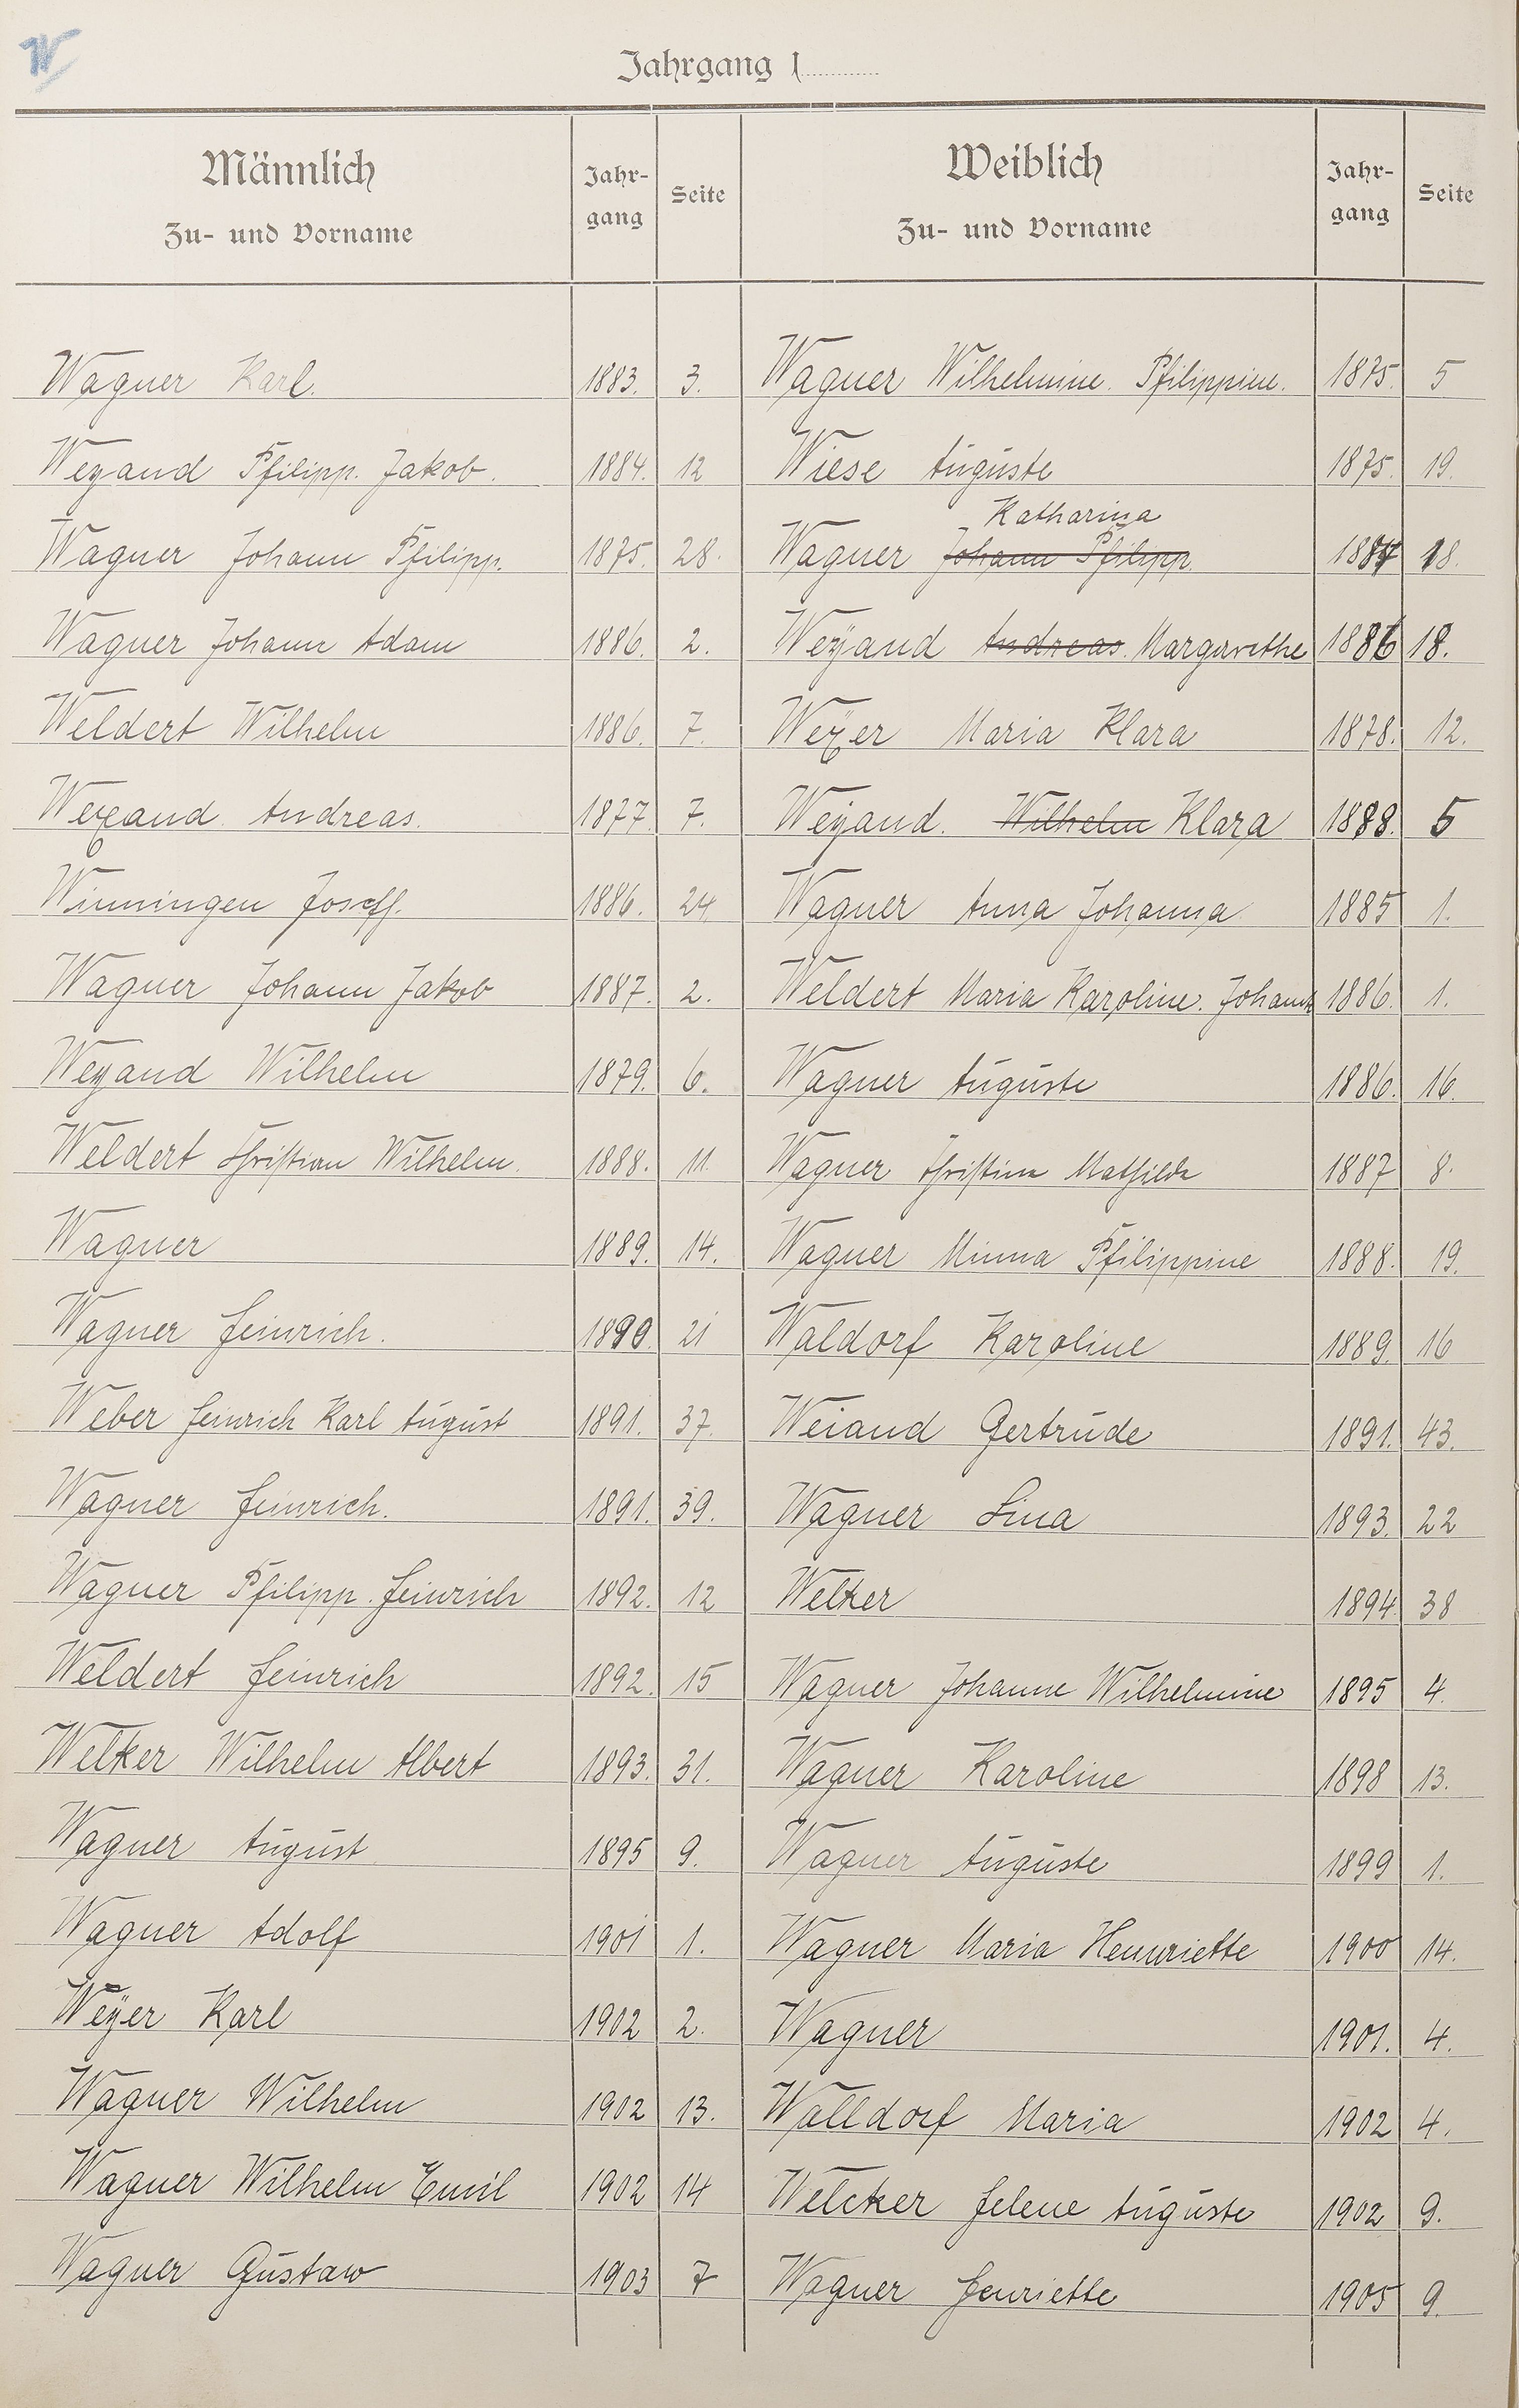 W
Jahrgang 1
Männlich Jahr- Seite Weiblich Jahr- Seite
Zu- und Vorname gang Zu- und Vorname gang
Wagner Karl. 1883. 3. Wagner Wilhelmine. Philippine. 1875. 5
Weyand Philipp. Jakob. 1884. 12 Wiese Auguste 1875. 19.
Katharina
Wagner Johann Philipp. 1875. 28. Wagner Johann Philipp. 1884 18.
Wagner Johann Adam 1886. 2. Weyand Andreas. Margarethe 1886 18.
Weldert Wilhelm 1886. 7. Weyer Maria Klara 1878. 12.
Weyand Andreas. 1877 7. Weyand. Wilhelm Klara 1888. 5
Winningen Joseph. 1886. 24 Wagner Anna Johanna 1885 1.
Wagner Johann Jakob 1887. 2. Weldert Maria Karoline. Johanna 1886. 1.
Weyand Wilhelm 1879. 6. Wagner Auguste 1886. 16.
Weldert Christian Wilhelm. 1888. 11. Wagner Christine Mathilde 1887 8.
Wagner 1889. 14. Wagner Minna Philippine 1888. 19.
Wagner Heinrich. 1890. 21 Waldorf Karoline 1889. 16
Weber Heinrich Karl August 1891. 37. Weiand Gertrude 1891. 43.
Wagner Heinrich. 1891. 39. Wagner Lina 1893. 22
Wagner Philipp. Heinrich 1892. 12 Welker 1894 38
Weldert Heinrich 1892. 15 Wagner Johanne Wilhelmine 1895 4.
Welker Wilhelm Albert 1893. 31. Wagner Karoline 1898 13.
Wagner August 1895 9. Wagner Auguste 1899 1.
Wagner Adolf 1901 1. Wagner Maria Hennriette 1900 14.
Weyer Karl 1902 2. Wagner 1901. 4.
Wagner Wilhelm 1902 13. Walldorf Maria 1902 4.
Wagner Wilhelm Emil 1902 14 Welcker Helene Auguste 1902 9.
Wagner Gustaw 1903 7 Wagner Henriette 1905 9.